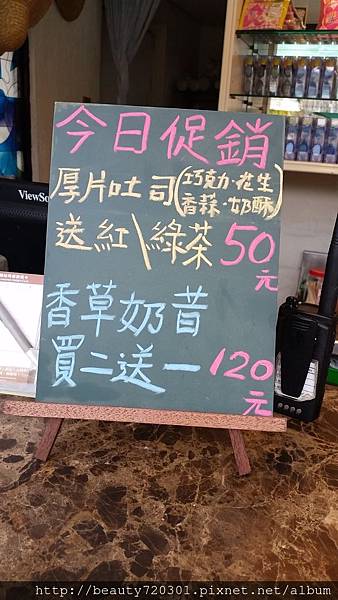 今日促銷
厚片吐司(巧克力·花生
香蒜·奶酥)
送紅\綠茶50元
香草奶昔
買二送一120元
ViewSo
http://beauty720301.pixnet.net/album